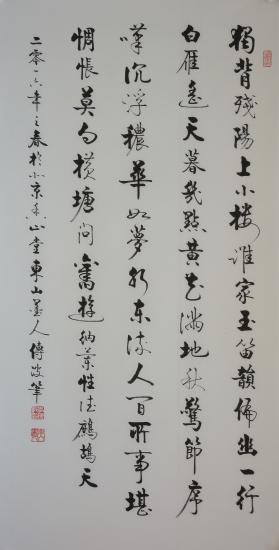 獨背殘陽上小樓誰家玉笛韻偏幽一行
白雁遙天暮幾點黃花滿地秋驚節序
嘆沉浮穠華如夢水東流人間所事堪
惆悵莫向橫塘問舊遊納蘭性德鷓鴣天
二零一六年之春於北京香山堂東山墨人筆